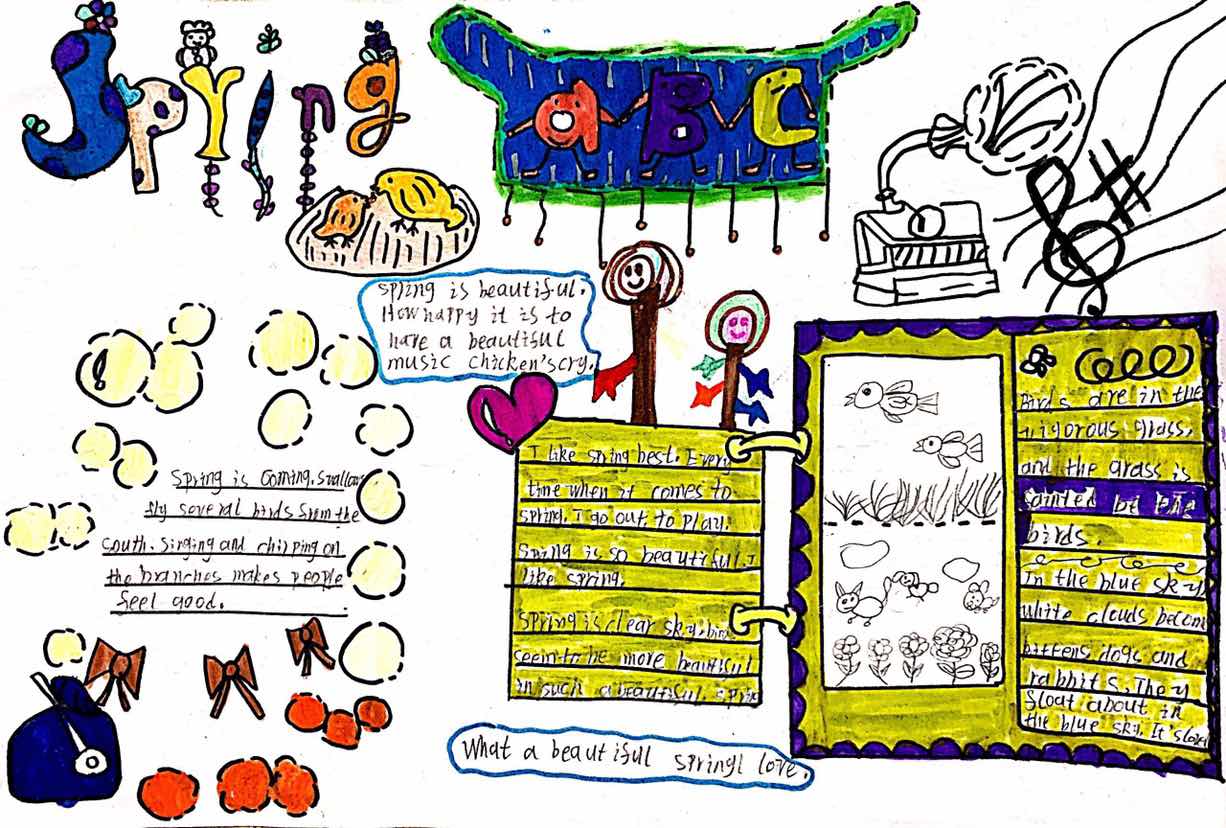 Spring
a B C
spring is beautiful.
How happy it is to
have a beautiful
music chicken's cry.
Spring is coming. Swallow
fly several birds from the
south. Singing and chirping on
the branches makes people
feel good.
I like spring best. Every
time when it comes to
spring. I go out to play.
Spring is so beautiful. I
like spring.
Spring is clear sky. bir
seem to be more beautiful
in such a beautiful. spring
What a beautiful spring I love.
Birds are in the
vigorous grass.
and the grass is
painted by the
birds.
In the blue sky
white clouds becom
kittens dogs and
rabbits. They
float about in
the blue sky. It's